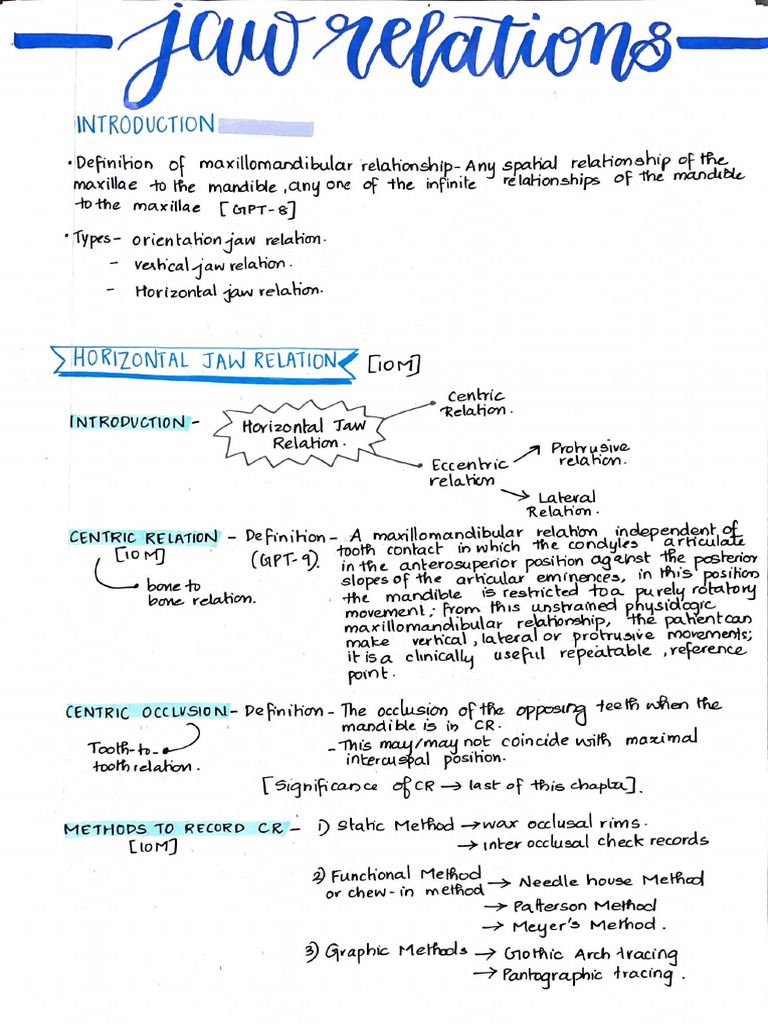 jaw relations
INTRODUCTION
• Definition of maxillomandibular relationship - Any spatial relationship of the
maxillae to the mandible, any one of the infinite relationships of the mandible
to the maxillae [GPT-8]
• Types - orientation jaw relation.
- vertical jaw relation.
- Horizontal jaw relation.
HORIZONTAL JAW RELATION [10M]
INTRODUCTION -
Horizontal Jaw
Relation.
Centric
Relation.
Eccentric
relation
Protrusive
relation.
Lateral
Relation.
CENTRIC RELATION - Definition - A maxillomandibular relation independent of
[10M] (GPT-9). tooth contact in which the condyles articulate
in the anterosuperior position against the posterior
slopes of the articular eminences, in this position
bone to
bone relation.
the mandible is restricted to a purely rotatory
movement; from this unstrained physiologic
maxillomandibular relationship, the patient can
make vertical, lateral or protrusive movements;
it is a clinically useful repeatable, reference
point.
CENTRIC OCCLUSION - Definition - The occlusion of the opposing teeth when the
mandible is in CR.
Tooth-to-
tooth relation.
- This may/may not coincide with maximal
intercuspal position.
[Significance of CR → last of this chapter].
METHODS TO RECORD CR - 1) Static Method → wax occlusal rims.
[10M] → inter occlusal check records
2) Functional Method
or chew-in method → Needle house Method
→ Patterson Method
→ Meyer's Method.
3) Graphic Methods → Gothic Arch tracing
→ Pantographic tracing.